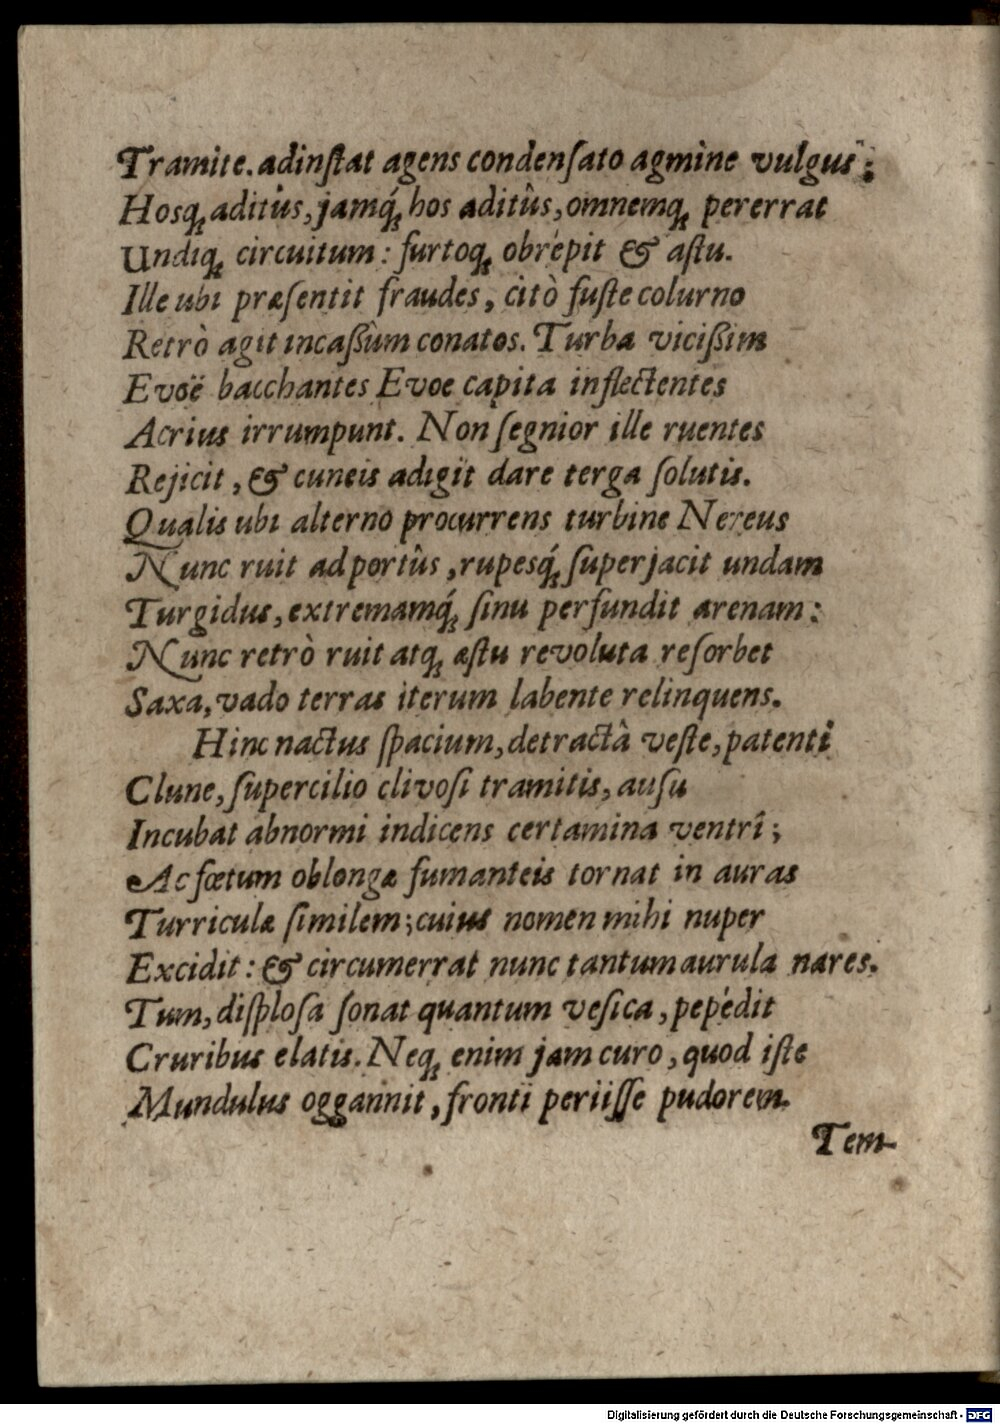 Tramite. adinſtat agens condenſato agmine vulgus;
Hosq; aditûs, jamq́; hos aditûs, omnemq; pererrat
Undiq; circuitum: furtoq; obrépit & aſtu.
Ille ubi præſentit fraudes, citò fuſte colurno
Retrò agit incaßùm conatos. Turba vicißim
Evoë bacchantes Evoe capita inflectentes
Acrius irrumpunt. Non ſegnior ille ruentes
Rejicit, & cuneis adigit dare terga ſolutis.
Qualis ubi alterno procurrens turbine Nereus
Nunc ruit ad portûs, rupesq́; ſuperjacit undam
Turgidus, extremamq́; ſinu perfundit arenam:
Nunc retrò ruit atq; æſtu revoluta reſorbet
Saxa, vado terras iterum labente relinquens.
Hinc nactus ſpacium, detractà veſte, patenti
Clune, ſupercilio clivoſi tramitis, auſu
Incubat abnormi indicens certamina ventrî;
Ac fœtum oblongæ fumanteis tornat in auras
Turriculæ ſimilem; cuius nomen mihi nuper
Excidit: & circumerrat nunc tantum aurula nares.
Tum, diſploſa ſonat quantum veſica, pepédit
Cruribus elatis. Neq; enim jam curo, quod iſte
Mundulus oggannit, fronti periiſſe pudorem.
Tem-
Digitalisierung gefördert durch die Deutsche Forschungsgemeinschaft - DFG